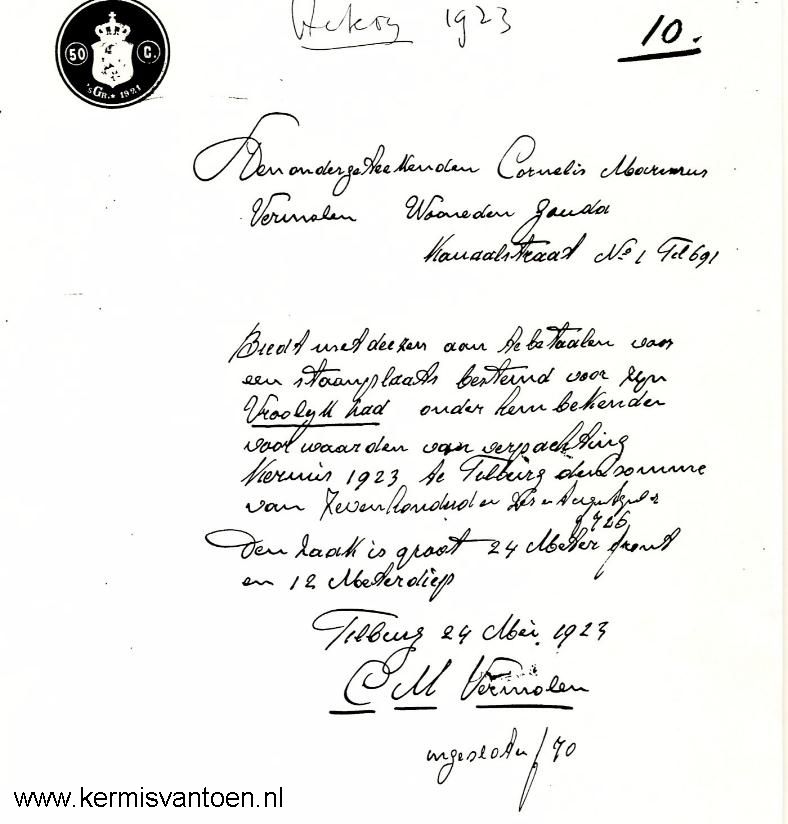 1923
10.
50 C.
'sGR. * 1921
Den ondergeteekenden Cornelis Marinus
Vermolen Wooneden Gouda
Kanaalstraat No 1 Tel 691
Biedt met deezen aan te betaalen voor
een staanplaats bestemd voor zyn
Vroolyk Rad onder hem bekenden
voorwaarden van verpachting
Kermis 1923 te Tilburg den somme
van Zevenhonderden
ƒ 726
Den zaak is groot 24 Meter front
en 12 Meter diep
Tilburg 24 Mei. 1923
C M Vermolen
ingesloten ƒ 70
www.kermisvantoen.nl